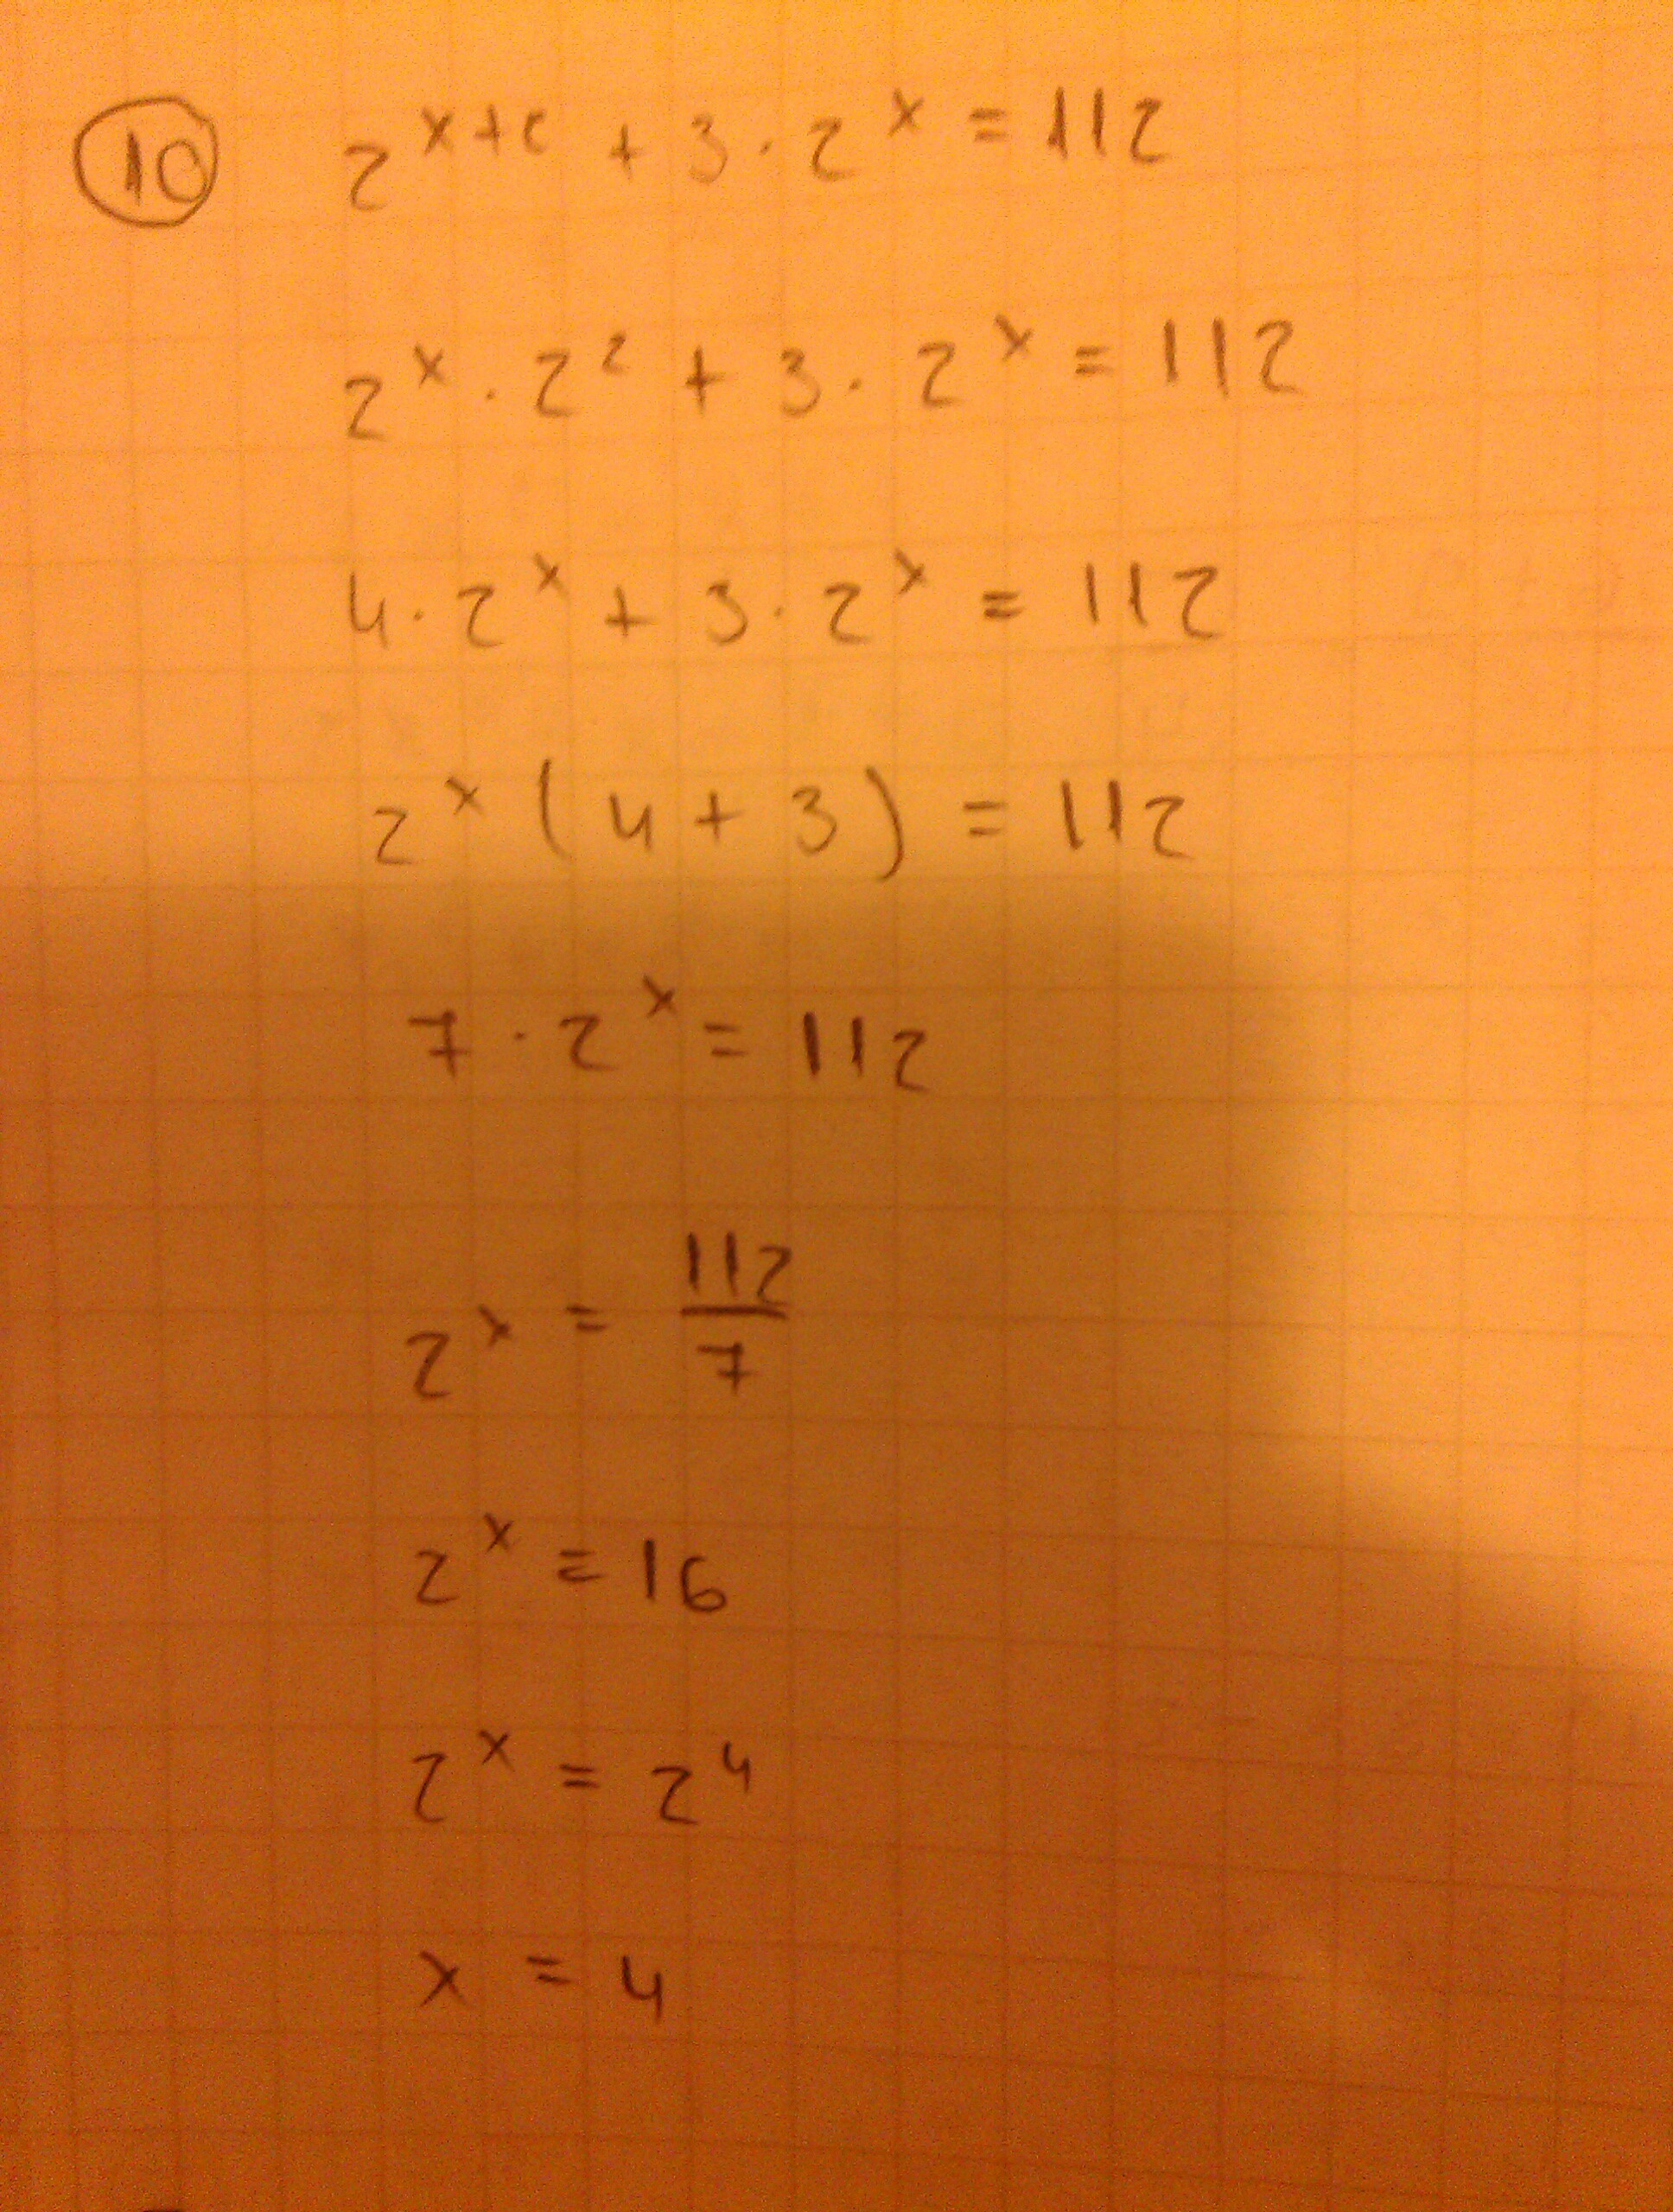 10 2^{x+2} + 3 · 2^x = 112
2^x · 2^2 + 3 · 2^x = 112
4 · 2^x + 3 · 2^x = 112
2^x (4 + 3) = 112
7 · 2^x = 112
2^x = 112/7
2^x = 16
2^x = 2^4
x = 4